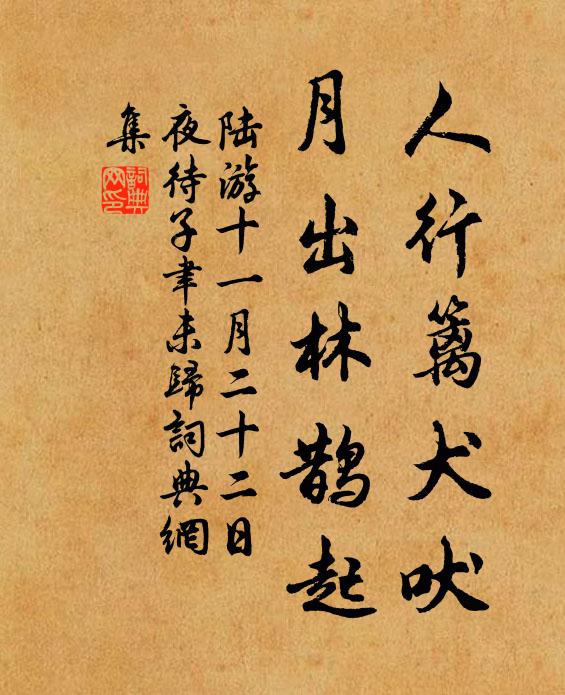 人行篱犬吠
月出林鹊起
陆游十一月二十二日
夜待子聿未歸詞典網
集
詞典
网印